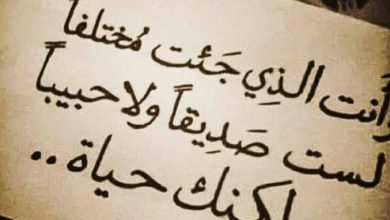 وأنت الذِي جَئت مُختلفاً
لست صَدِيقاً ولا حبيباً
لكنك حياة ..